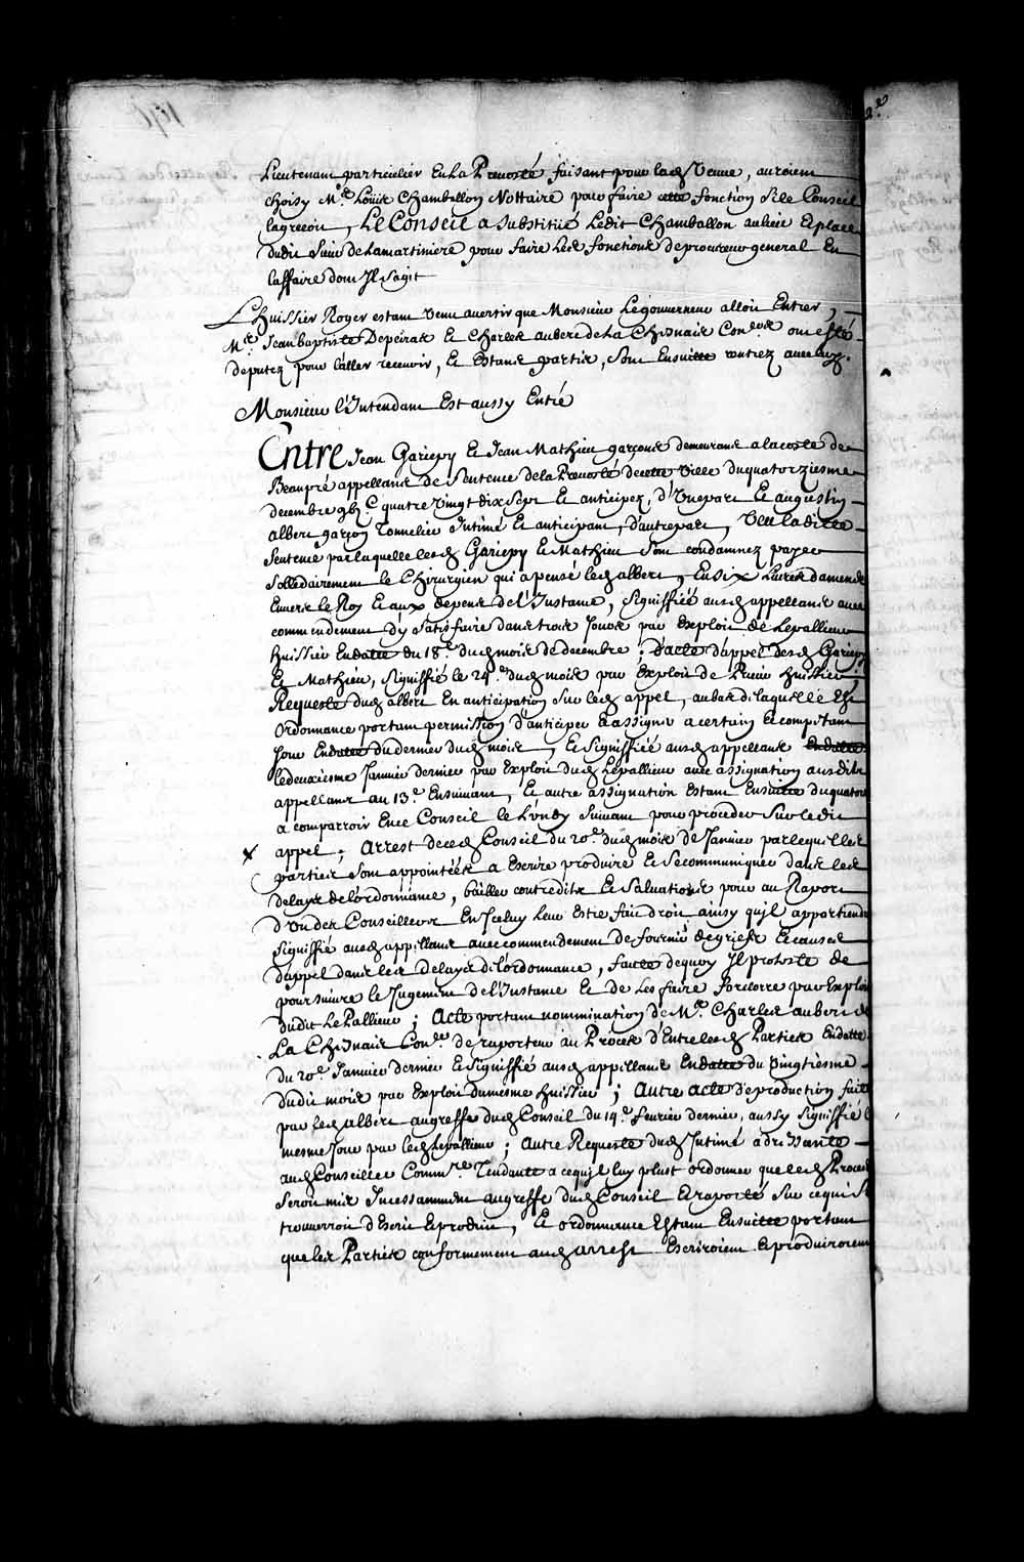 Lieutenant particulier En La Prevosté faisant pour lad Veuve, auroient
choisy Me Loüis Chamballon Nottaire pour faire cette fonction si le Conseil
l'agreeoit, Le Conseil a Substitüé Ledit Chamballon au lieu Et place
dudit Sieur de Lamartiniere pour faire Les fonctions de procureur general En
l'affaire dont Il s'agit
L'huissier Roger estant Venu avertir que Monsieur Le gouverneur alloit Entrer,
Mes Jean baptiste Depeiras Et Charles aubert de La Chesnaie Coners ont esté
deputez pour l'aller recevoir, Et Estans partis, sont Ensuitte rentrez avec luy.
Monsieur l'Intendant Est aussy Entré
Entre Jean Gariepy Et Jean Mathieu garçons demeurans a la coste de
Beaupré appellans de Sentence de la Prevosté de cette Ville du quatorziesme
decembre 9bj C quatre Vingt dix Sept Et anticipez, d'Une part Et augustin
albert garçon Tonnelier Intimé Et anticipant, d'autre part, Veu ladite
Sentence par laquelle lesd Gariepy Et Mathieu sont condamnez payer
sollidairement le Chirurgien qui a pensé led albert, En six Livres d'amende
Envers le Roy Et aux depens de l'Instance, signiffiée ausd appellans avec
commendement d'y satisfaire dans trois Jours par Exploit de Lepallieur
huissier En datte du 18e dud mois de decembre; d'acte d'appel desd Gariepy
Et Mathieu, signiffié le 24e dud mois par Exploit de Prieur huissier;
Requeste dud albert En anticipation sur led appel, au bas de laquelle Est
Ordonnance portant permission d'anticiper Et assigner a certain Et competant
Jour En datte du dernier dud mois, Et signiffiée ausd appellans
le deuxiesme Janvier dernier par Exploit dud Lepallieur avec assignation ausdits
appellans au 13e Ensuivant, Et autre assignation Estant Ensuitte du quatorze
a comparroir En ce Conseil le Lundy suivant pour proceder sur ledit
appel; Arrest de ced Conseil du 20e dud mois de Janvier par lequel les
parties sont appointées a Escrire produire Et se communiquer dans les
delays de l'ordonnance, bailler contredits Et Salvations pour au Raport
d'Un des Conseillers En Iceluy leur Estre fait droit ainsy qu'il appartiendra
signiffié ausd appellans avec commendement de fournir de griefs Et causes
d'appel dans les delays de l'ordonnance, faute de quoy Il proteste de
poursuivre le Jugement de l'Instance Et de les faire forclorre par Exploit
dudit LePallieur; Acte portant nommination de Me Charles aubert de
La Chesnaie Coner de raporteur au Procez d'Entre lesd Parties En datte
du 20e Janvier dernier Et signiffié ausd appellans En datte du Vingtiesme
dudit mois par Exploit du mesme huissier; Autre acte de production fait
par led albert au greffe dud Conseil du 14e fevrier dernier, aussy signiffié le
mesme Jour par led Lepallieur; autre Requeste dud Intimé adressante
aud Conseiller Commre Tendante a ce qu'il luy plust ordonner que led Procez
seroit mis Incessamment au greffe dud Conseil Et raporté sur ce qui se
trouverroit d'Escrit Et produit, Et ordonnance Estant Ensuitte portant
que les Parties conformement aud arrest Escriroient Et produiroient